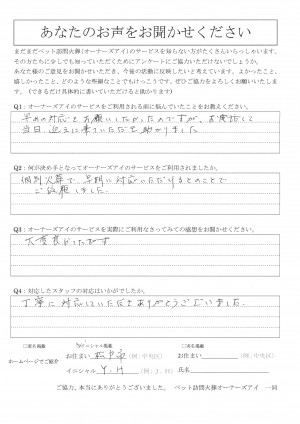 あなたのお声をお聞かせください
まだまだペット訪問火葬(オーナーズアイ)のサービスを知らない方がたくさんいらっしゃいます。
その方たちに少しでも知っていただくためにアンケートにご協力いただけないでしょうか。
あなた様のご意見をお聞かせいただき、今後の活動に反映したいと考えています。よかったこと、
嬉しかったこと、どのような些細なことでもけっこうです。ぜひご協力をよろしくお願いいたしま
す。(できるだけ具体的に書いていただけると助かります)
Q1：オーナーズアイのサービスをご利用される前に悩んでいたことをお教えください。
早めの対応をお願いしたかったのですが、お電話して
当日迎えに来ていただき助かりました
Q2：何が決め手となってオーナーズアイのサービスをご利用されましたか。
個別火葬で、早期に対応いただけるとのことで
ご依頼しました。
Q3：オーナーズアイのサービスを実際にご利用なさってみての感想をお聞かせください。
大変良かったです
Q4：対応したスタッフの対応はいかがでしたか。
丁寧に対応していただきありがとうございました。
ホームページでご紹介
イニシャル掲載
□実名掲載
お住まい
(例：中央区)
イニシャル Y.H (例：J.H)
お住まい (例：中央区)
氏名
ご協力、本当にありがとうございました。 ペット訪問火葬オーナーズアイ 一同